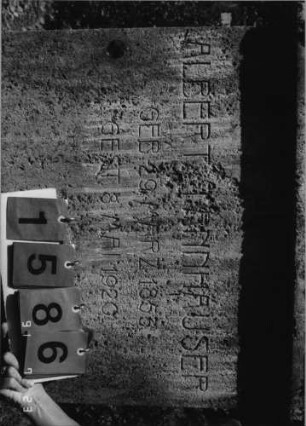 ALBERT SANDHAUSER
GEB. 29. MÄRZ 1858
GEST. 8. MAI 1920
1586